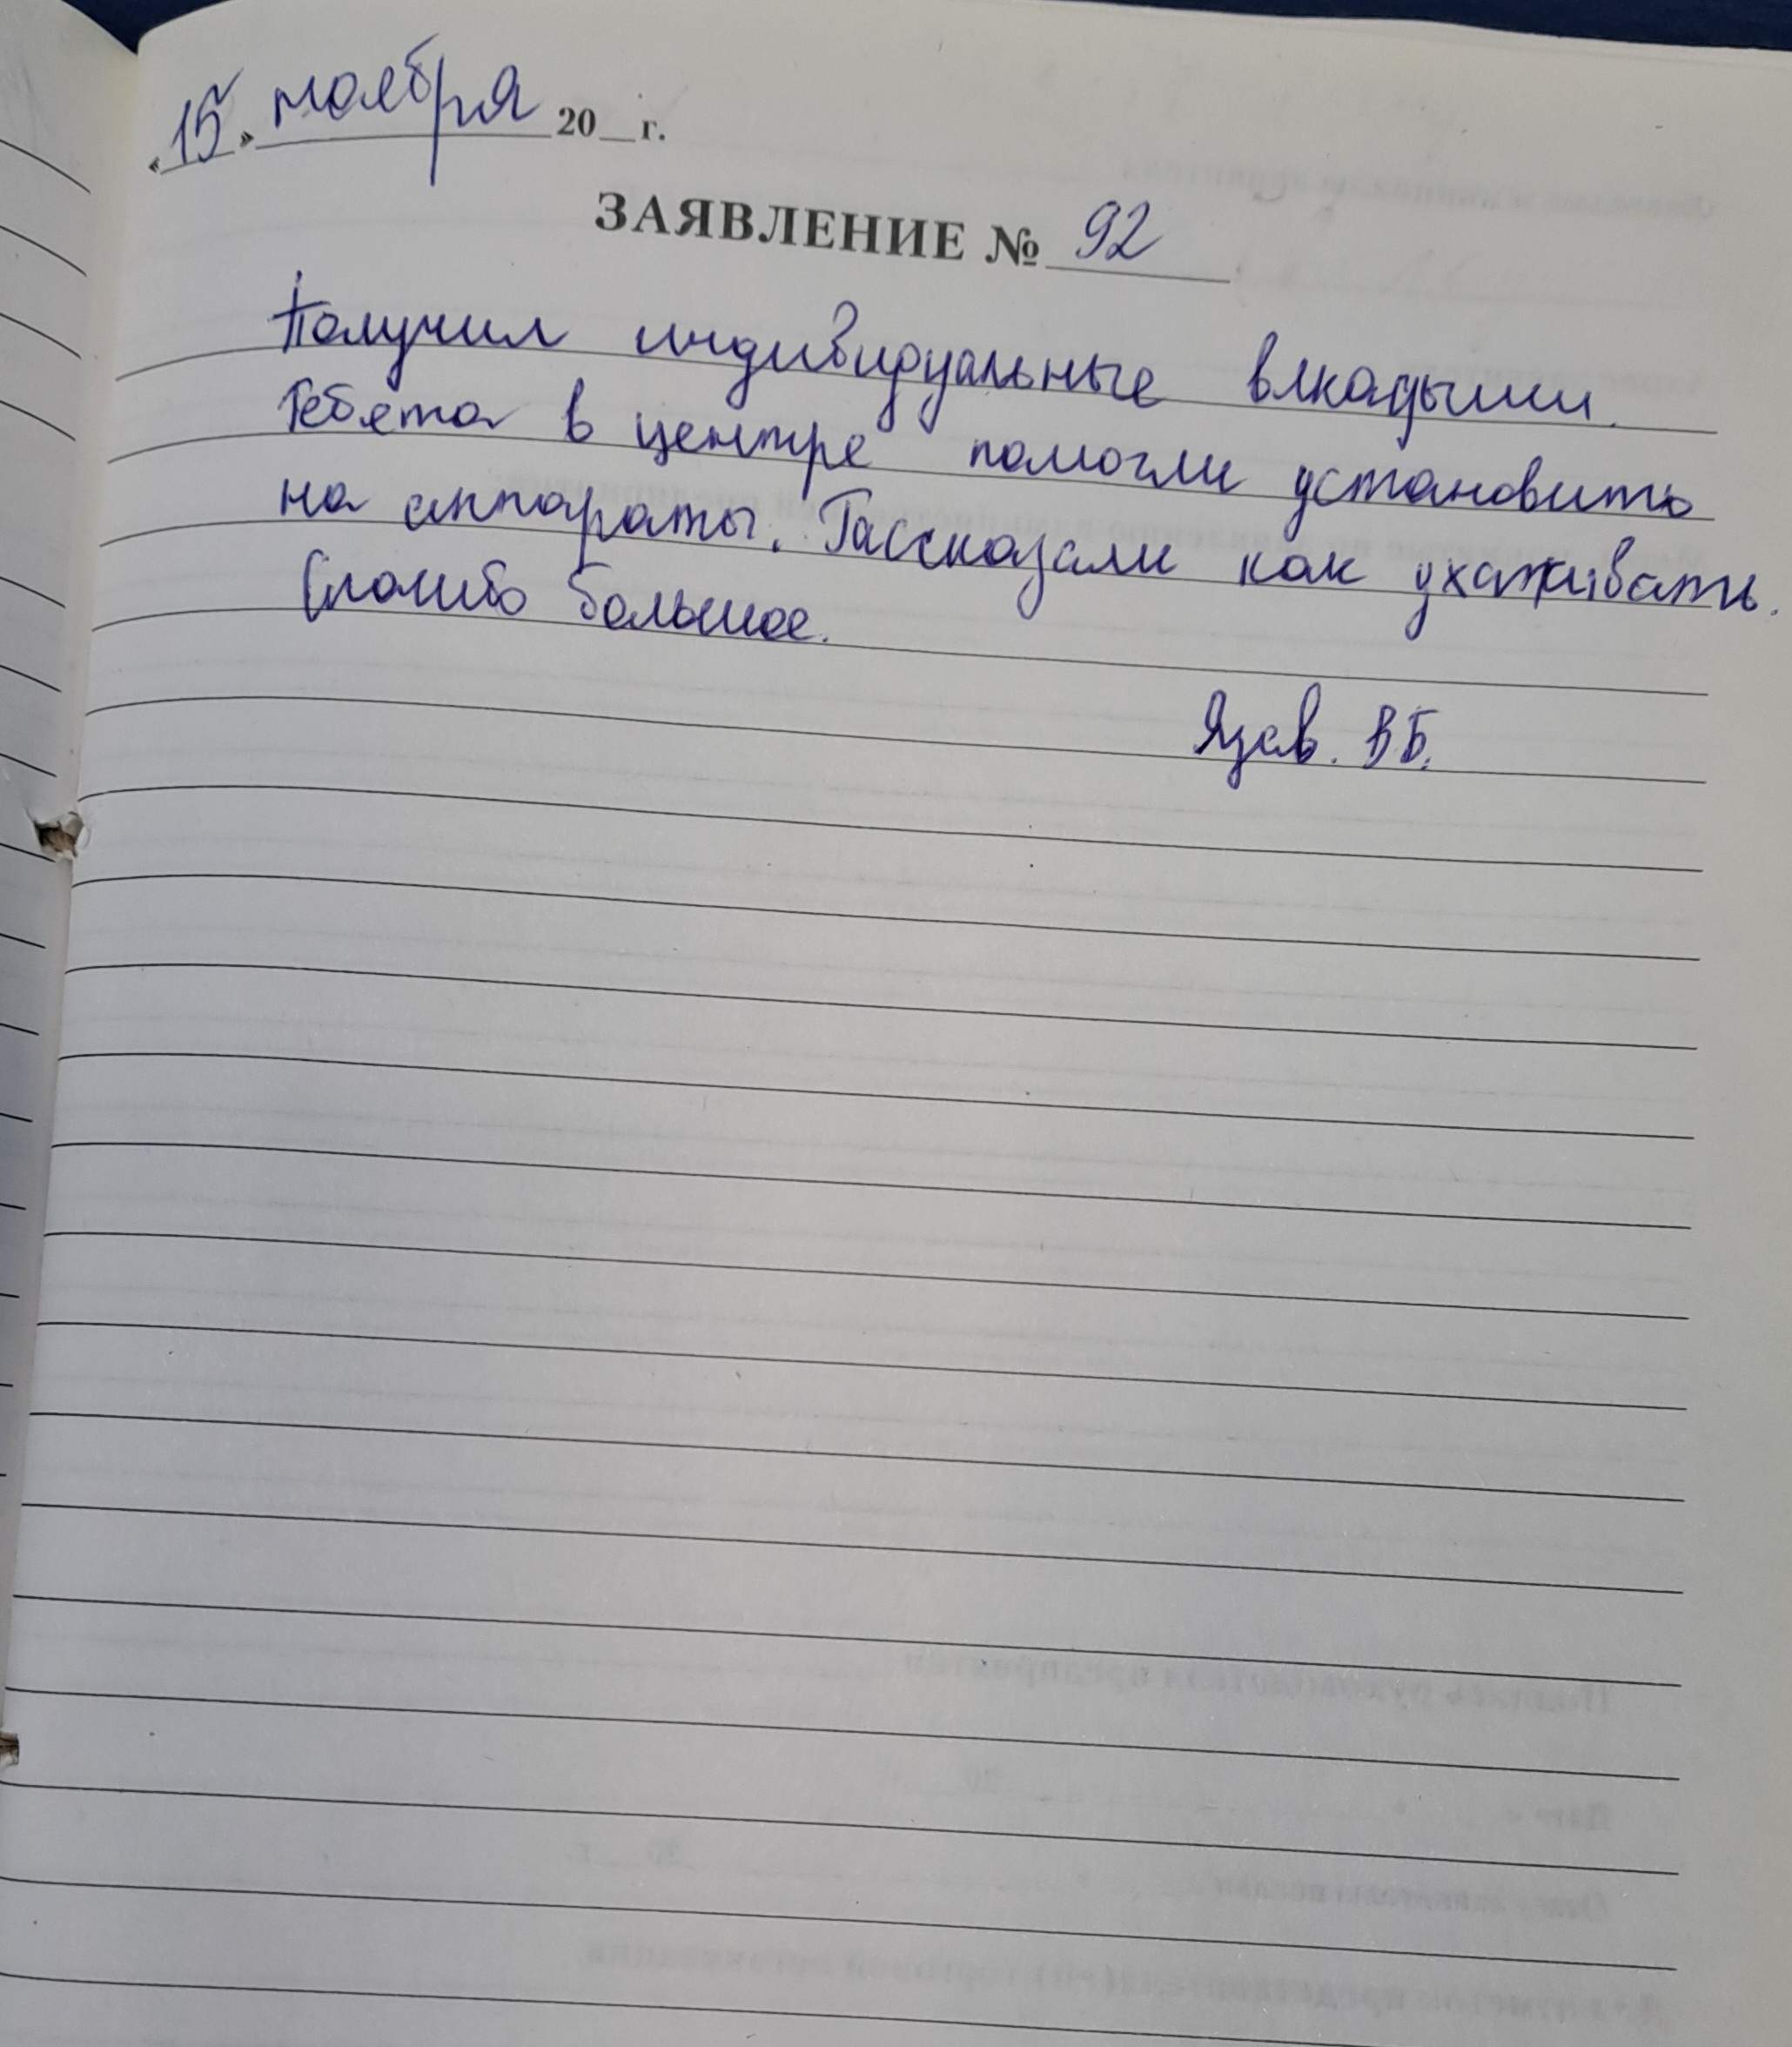 «15» ноября 20__г.
ЗАЯВЛЕНИЕ № 92
Получил индивидуальные вкладыши.
Ребята в центре помогли установить
на аппараты. Рассказали как ухаживать.
Спасибо большое.
Язев. В Б.